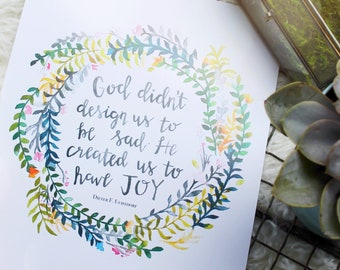 God didn't
design us to
be sad. He
created us to
have JOY
Dieter F. Uchtdorf